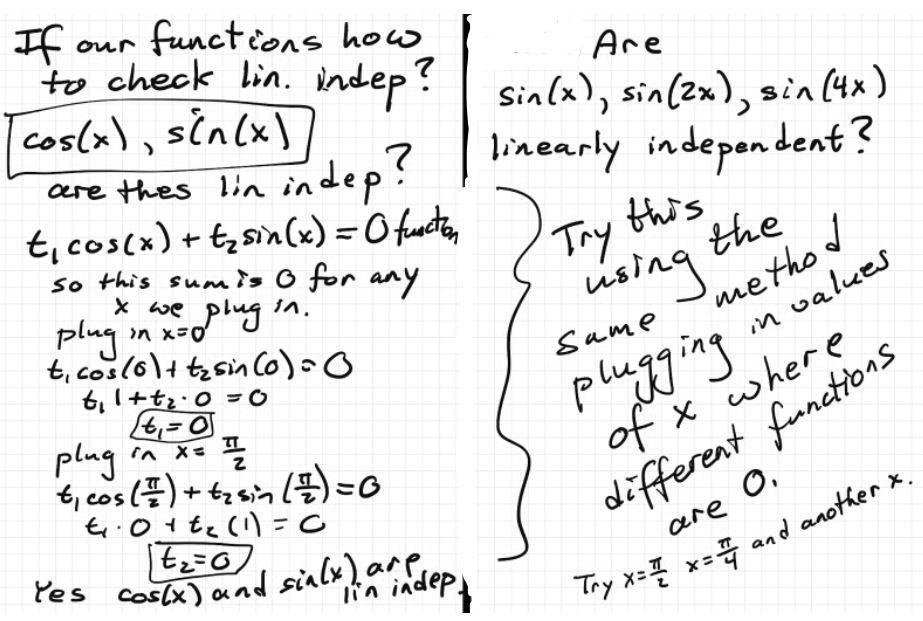 If our functions how
to check lin. indep?
cos(x), sin(x)
are thes lin indep?
t₁cos(x) + t₂sin(x) = 0 function
so this sum is 0 for any
x we plug in.
plug in x=0
t₁cos(0) + t₂sin(0) = 0
t₁ 1 + t₂ · 0 = 0
t₁ = 0
plug in x = π/2
t₁cos(π/2) + t₂sin(π/2) = 0
t₁ · 0 + t₂(1) = 0
t₂ = 0
Yes cos(x) and sin(x) are
lin indep
Are
sin(x), sin(2x), sin(4x)
linearly independent?
Try this
using the
same method
plugging in values
of x where
different functions
are 0.
Try x=π/2 x=π/4 and another x.